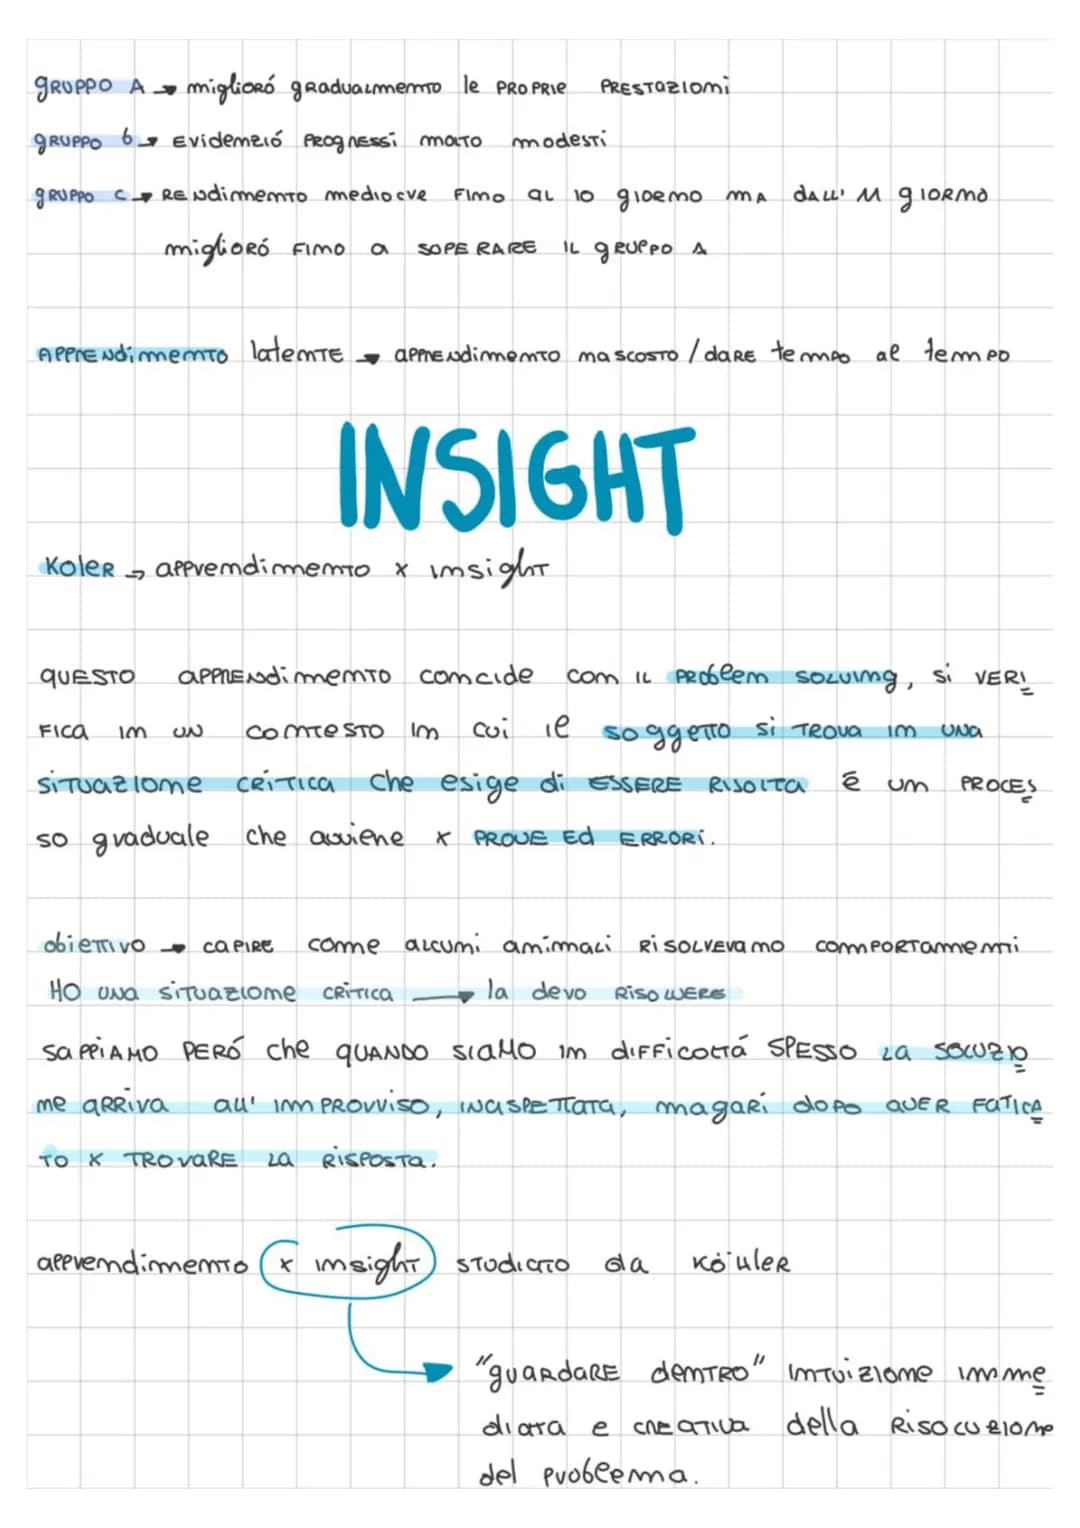 GRUPPO A → miglioró gradualmento le PROPRIE PRESTAZIONI
GRUPPO b → Evidenzió PROGRESSi molto modesti
GRUPPO C → RENdimento mediocre Fino al 10 giorno ma dall' 11 giorno
miglioró Fino a SOPERARE IL GRUPPO A
APPRENdimento latente → apprendimento nascosto / dare tempo al tempo
INSIGHT
Koler → apprendimento x insight
QUESTO APPRENdimento concide con il problem solving, si VERI
FICA in UN contesto in cui il soggetto si trova in una
situazione critica che esige di ESSERE RISOLTA é un PROCES
so graduale che avviene x PROVE Ed ERRORi.
obiettivo → capire come alcuni animali risolvevano comportamenti
HO una situazione critica → la devo RISOLVERE
sappiamo peró che quando siamo in difficoltá spesso la soluzio
ne arriva all' improvviso, inaspettata, magari dopo aver fatica
to x trovare la risposta.
apprendimento x insight studiato da Köhler
"guardare dentro" intuizione imme
diata e creativa della risoluzione
del problema.